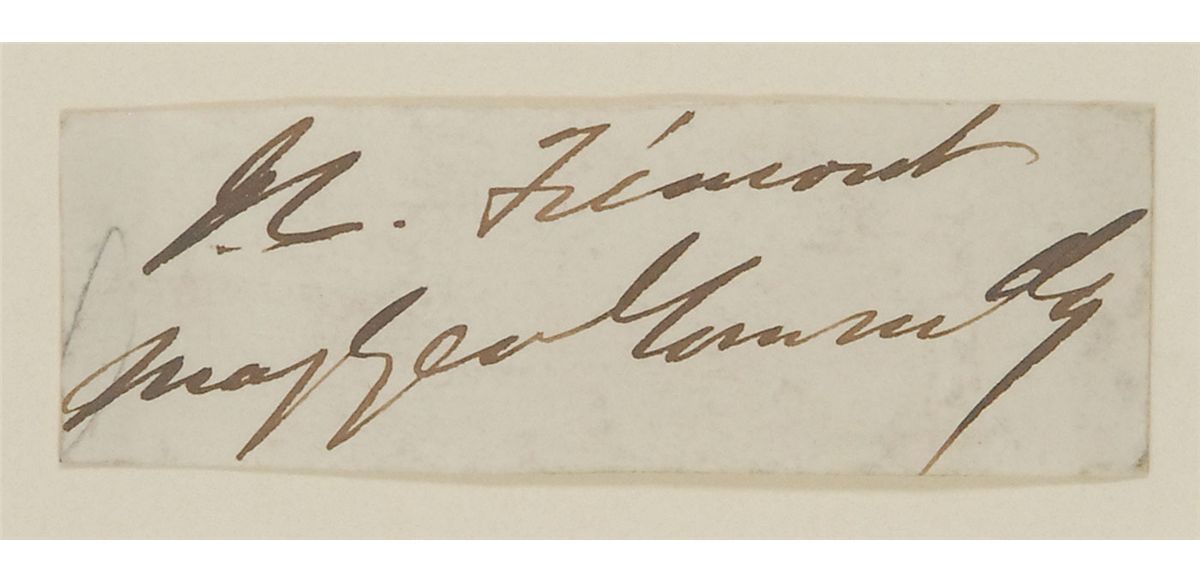 J.C. Frémont
Maj Gen Commdg